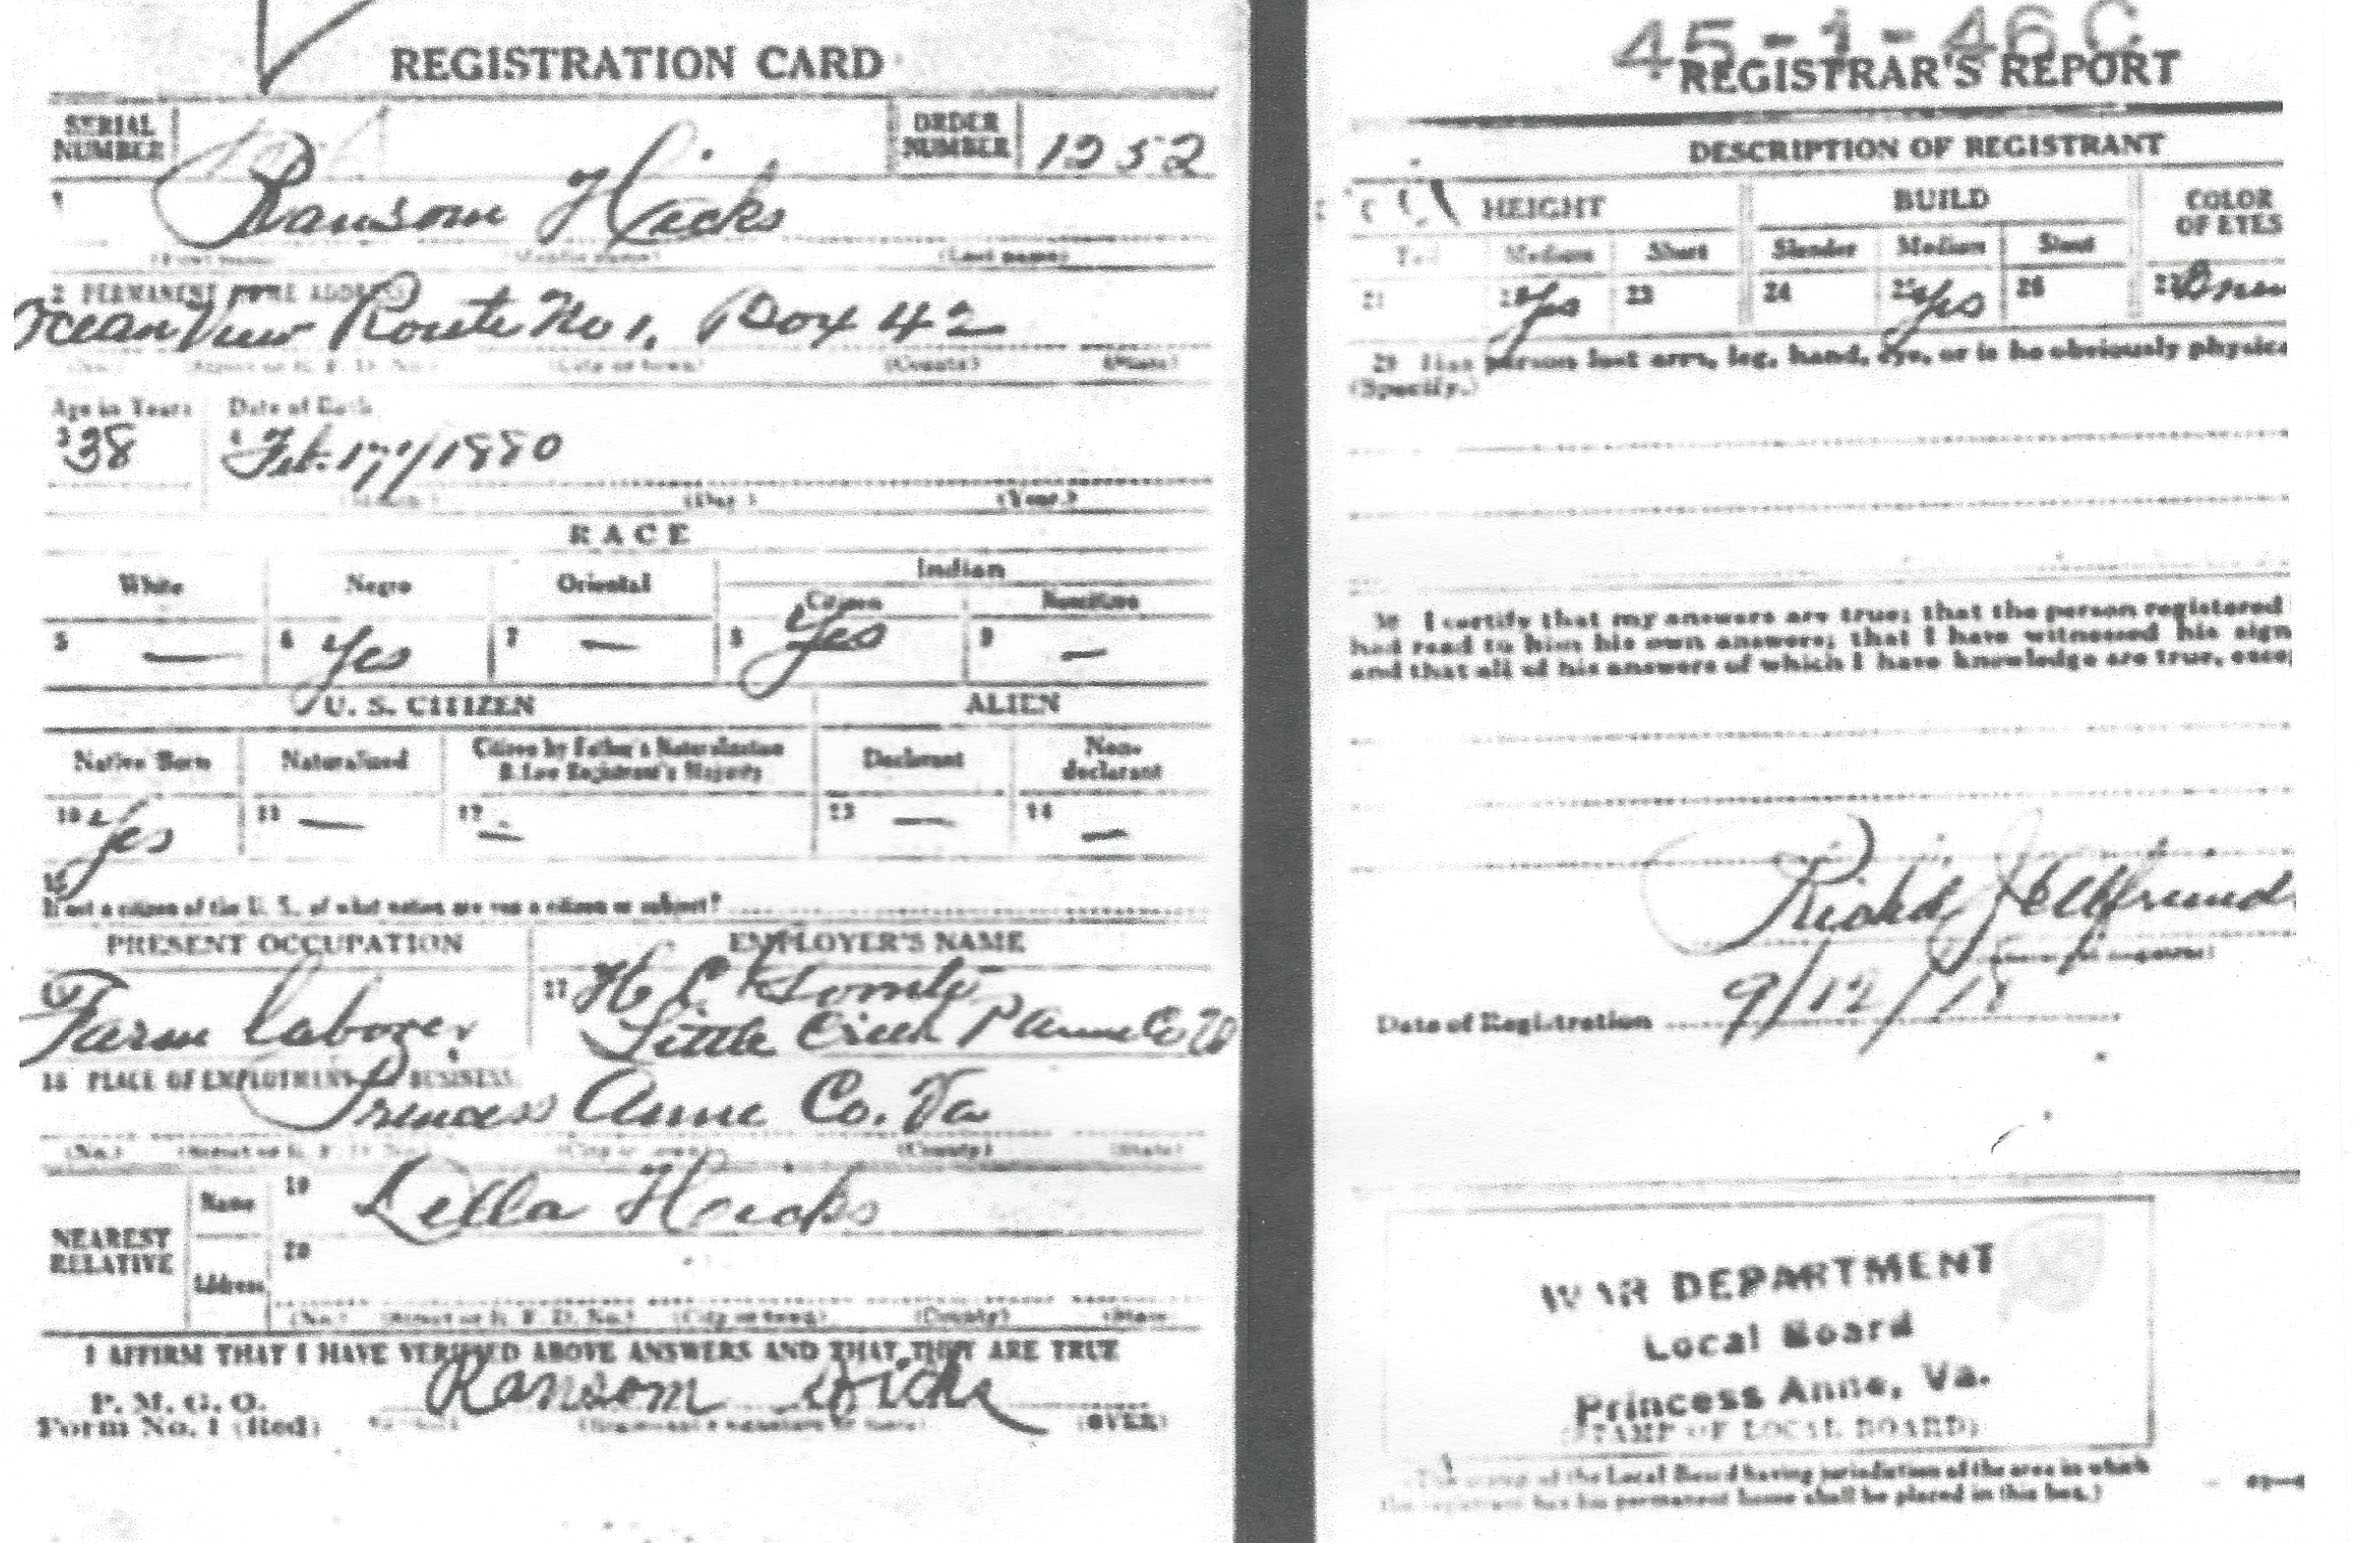 REGISTRATION CARD
SERIAL NUMBER
ORDER NUMBER 1252
1 Ransom Hicks
(First name) (Middle name) (Last name)
2 PERMANENT HOME ADDRESS
Ocean View Route No 1, Box 42
(No.) (Street or R. F. D. No.) (City or town) (County) (State)
Age in Years Date of Birth
3 38 4 Feb. 17, 1880
(Month.) (Day.) (Year.)
RACE
White Negro Oriental Indian
Citizen Noncitizen
5 — 6 Yes 7 — 8 Yes 9 —
U. S. CITIZEN ALIEN
Native Born Naturalized Citizen by Father's Naturalization Before Registrant's Majority Declarant Non-declarant
10 Yes 11 — 12 — 13 — 14 —
15
If not a citizen of the U. S., of what nation are you a citizen or subject?
PRESENT OCCUPATION EMPLOYER'S NAME
Farm laborer 17 H C
Little Creek P Anne Co Va
18 PLACE OF EMPLOYMENT OR BUSINESS
Princess Anne Co. Va
(No.) (Street or R. F. D. No.) (City or town) (County) (State)
NEAREST RELATIVE
Name 19 Lella Hicks
Address 20
(No.) (Street or R. F. D. No.) (City or town) (County) (State)
I AFFIRM THAT I HAVE VERIFIED ABOVE ANSWERS AND THAT THEY ARE TRUE
P. M. G. O.
Form No. 1 (Red) Ransom Hicks
(Registrant's signature or mark) (OVER)
45-1-46 C
REGISTRAR'S REPORT
DESCRIPTION OF REGISTRANT
HEIGHT BUILD COLOR OF EYES
Tall Medium Short Slender Medium Stout
21 22 Yes 23 24 25 Yes 26 27
29 Has person lost arm, leg, hand, eye, or is he obviously physica
(Specify.)
30 I certify that my answers are true; that the person registered
had read to him his own answers; that I have witnessed his sign
and that all of his answers of which I have knowledge are true, exce
Date of Registration 9/12/18
WAR DEPARTMENT
Local Board
Princess Anne, Va.
(STAMP OF LOCAL BOARD)
(The stamp of the Local Board having jurisdiction of the area in which
the registrant has his permanent home shall be placed in this box.)